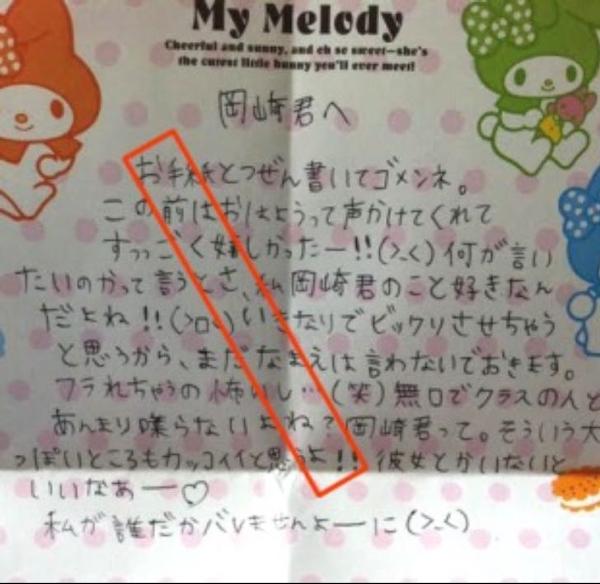 My Melody
Cheerful and sunny, and oh so sweet—she's
the cutest little bunny you'll ever meet!
岡崎君へ
お手紙とつぜん書いてゴメンネ。
この前はおはようって声かけてくれて
すっっごく嬉しかったー!!(>_<)何が言い
たいのかって言うとさ、私岡崎君のこと好きなん
だよね!!(>ロ<)いきなりでビックリさせちゃう
と思うから、まだなまえは言わないでおきます。
フラれちゃうの怖いし…(笑)無口でクラスの人と
あんまり喋らないよね?岡崎君って。そういう大
っぽいところもカッコイイと思うよ!!彼女とかいないと
いいなあー♡
私が誰だかバレませんよーに(>_<)